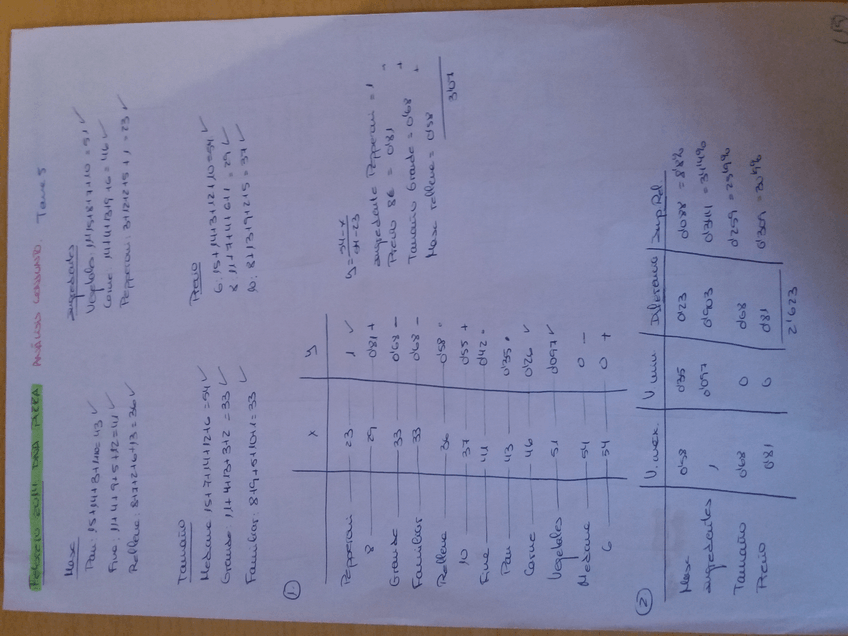 FEBRERO 2014 DÑA PIZZA. ANÁLISIS CONJUNTO. Tema 5
Masa
Pan: 15+14+3+1+10=43 ✓
Fina: 11+4+9+5+12=41 ✓
Rellena: 8+7+2+6+13=36 ✓
Ingredientes
Vegetales: 11+15+8+7+10=51 ✓
Carne: 14+4+13+9+6=46 ✓
Pepperoni: 3+12+2+5+1=23 ✓
Tamaño
Mediana: 15+7+14+12+6=54 ✓
Grande: 11+4+13+3+2=33 ✓
Familiar: 8+9+5+10+1=33 ✓
Precio
6: 15+14+3+12+10=54 ✓
8: 11+7+4+6+1=29 ✓
10: 8+13+9+2+5=37 ✓
①
X y
Pepperoni 23 1 ✓
8 29 0'81 +
Grande 33 0'68 -
Familiar 33 0'68 -
Rellena 36 0'58 =
10 37 0'55 +
Fina 41 0'42 =
Pan 43 0'35 •
Carne 46 0'26 ✓
Vegetales 51 0'097 ✓
Mediana 54 0 -
6 54 0 +
y = 54-x / 54-23
Ingrediente Pepperoni = 1 +
Precio 8€ = 0'81 +
Tamaño Grande = 0'68 +
Masa rellena = 0'58
3'07
②
V. max. V min Diferencia Imp. Rel
Masa 0'58 0'35 0'23 0'088 = 8'8%
Ingredientes 1 0'097 0'903 0'344 = 34'4%
Tamaño 0'68 0 0'68 0'259 = 25'9%
Precio 0'81 0 0'81 0'309 = 30'9%
2'623